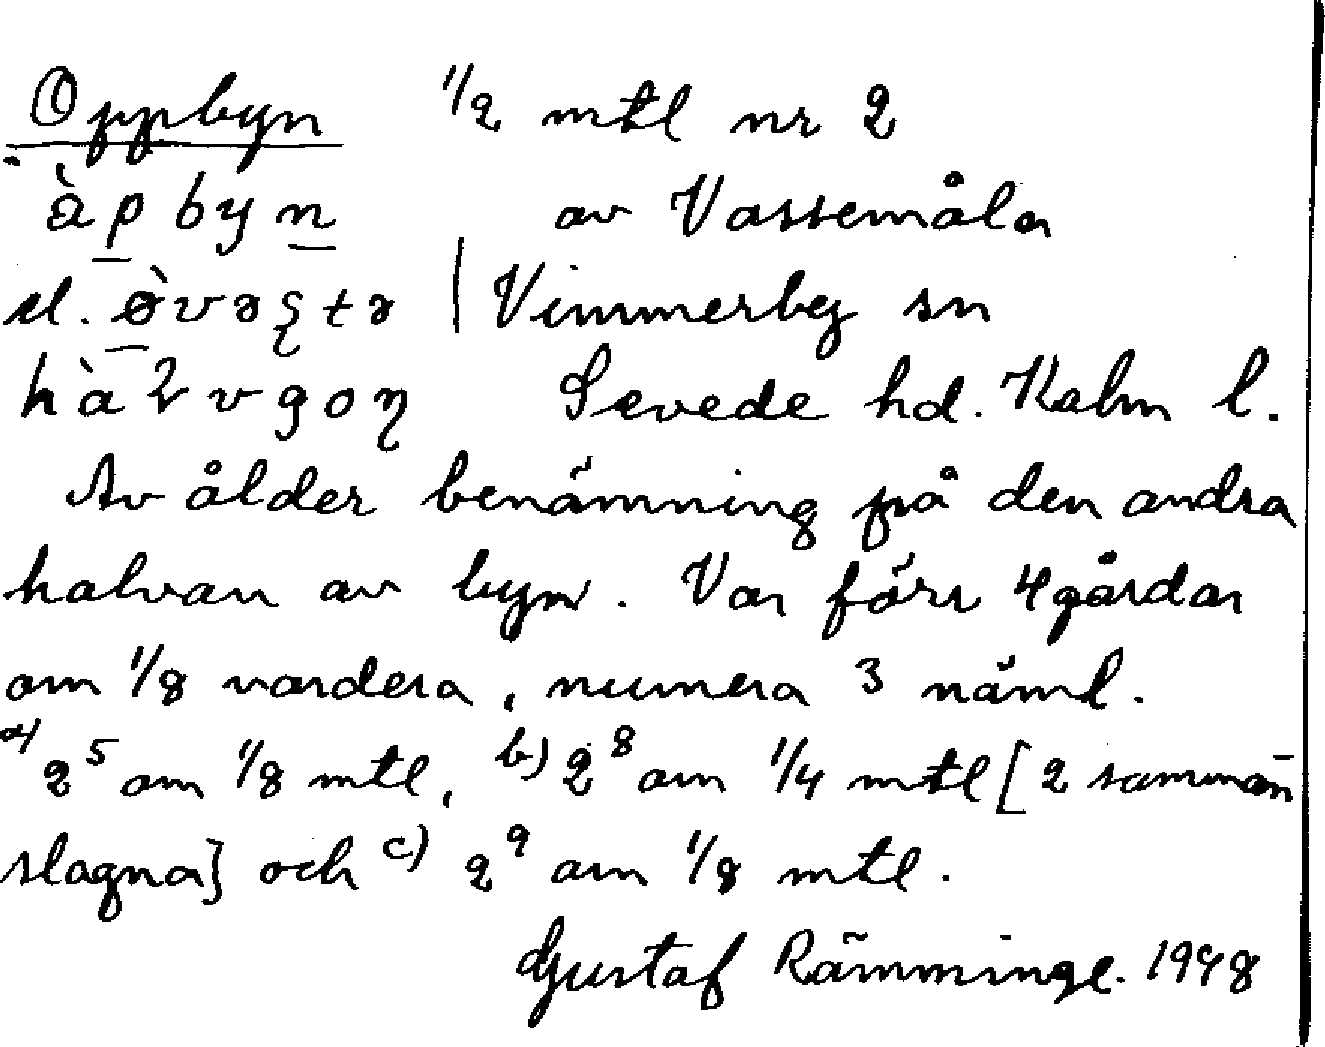 Oppbyn 1/2 mtl nr 2
àpbyn av Vassemåla
el. Vimmerby sn
Sevede hd. Kalm l.
Av ålder benämning på den andra
halvan av byn. Var förr 4 gårdar
om 1/8 vardera, numera 3 näml.
a) 2⁵ om 1/8 mtl, b) 2⁸ om 1/4 mtl [2 samman
slagna] och c) 2⁹ om 1/8 mtl.
Gustaf Rämminge. 1948